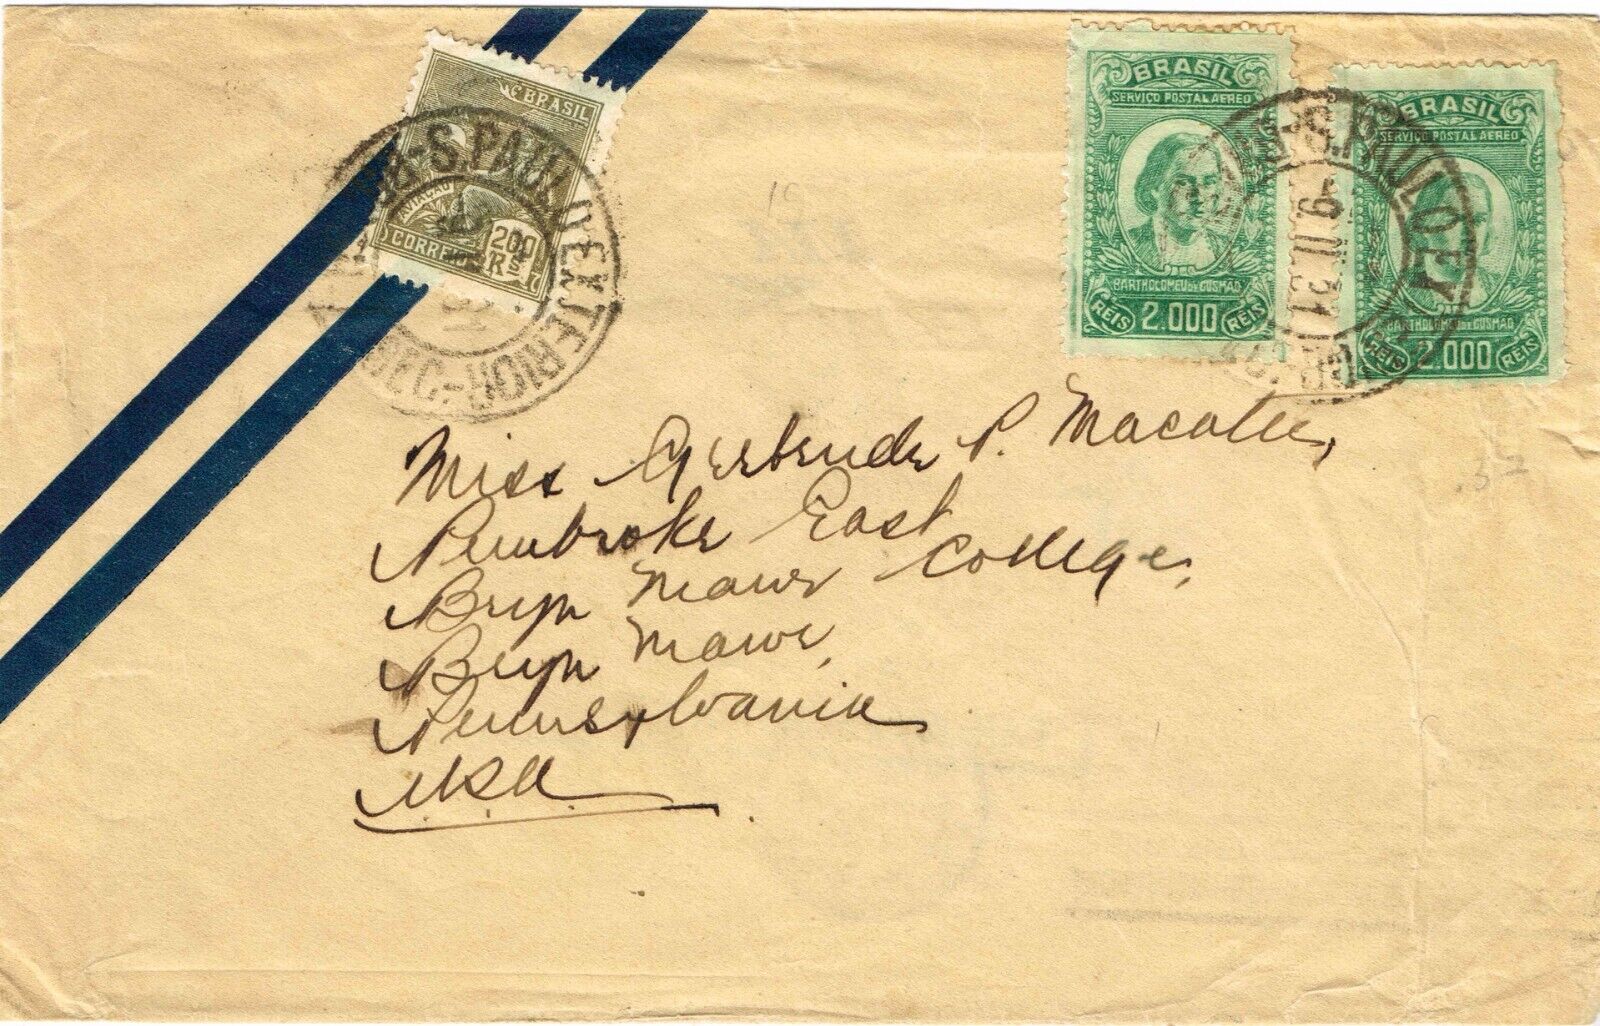 BRASIL
AVIAÇÃO
CORREIO 200 RS
S. PAULO
BRASIL
SERVIÇO POSTAL AEREO
BARTHOLOMEU DE GUSMÃO
REIS 2.000 REIS
BRASIL
SERVIÇO POSTAL AEREO
BARTHOLOMEU DE GUSMÃO
REIS 2.000 REIS
S. PAULO
Miss Gertrude P. Macatee,
Pembroke East
Bryn Mawr College,
Bryn Mawr,
Pennsylvania
U.S.A.